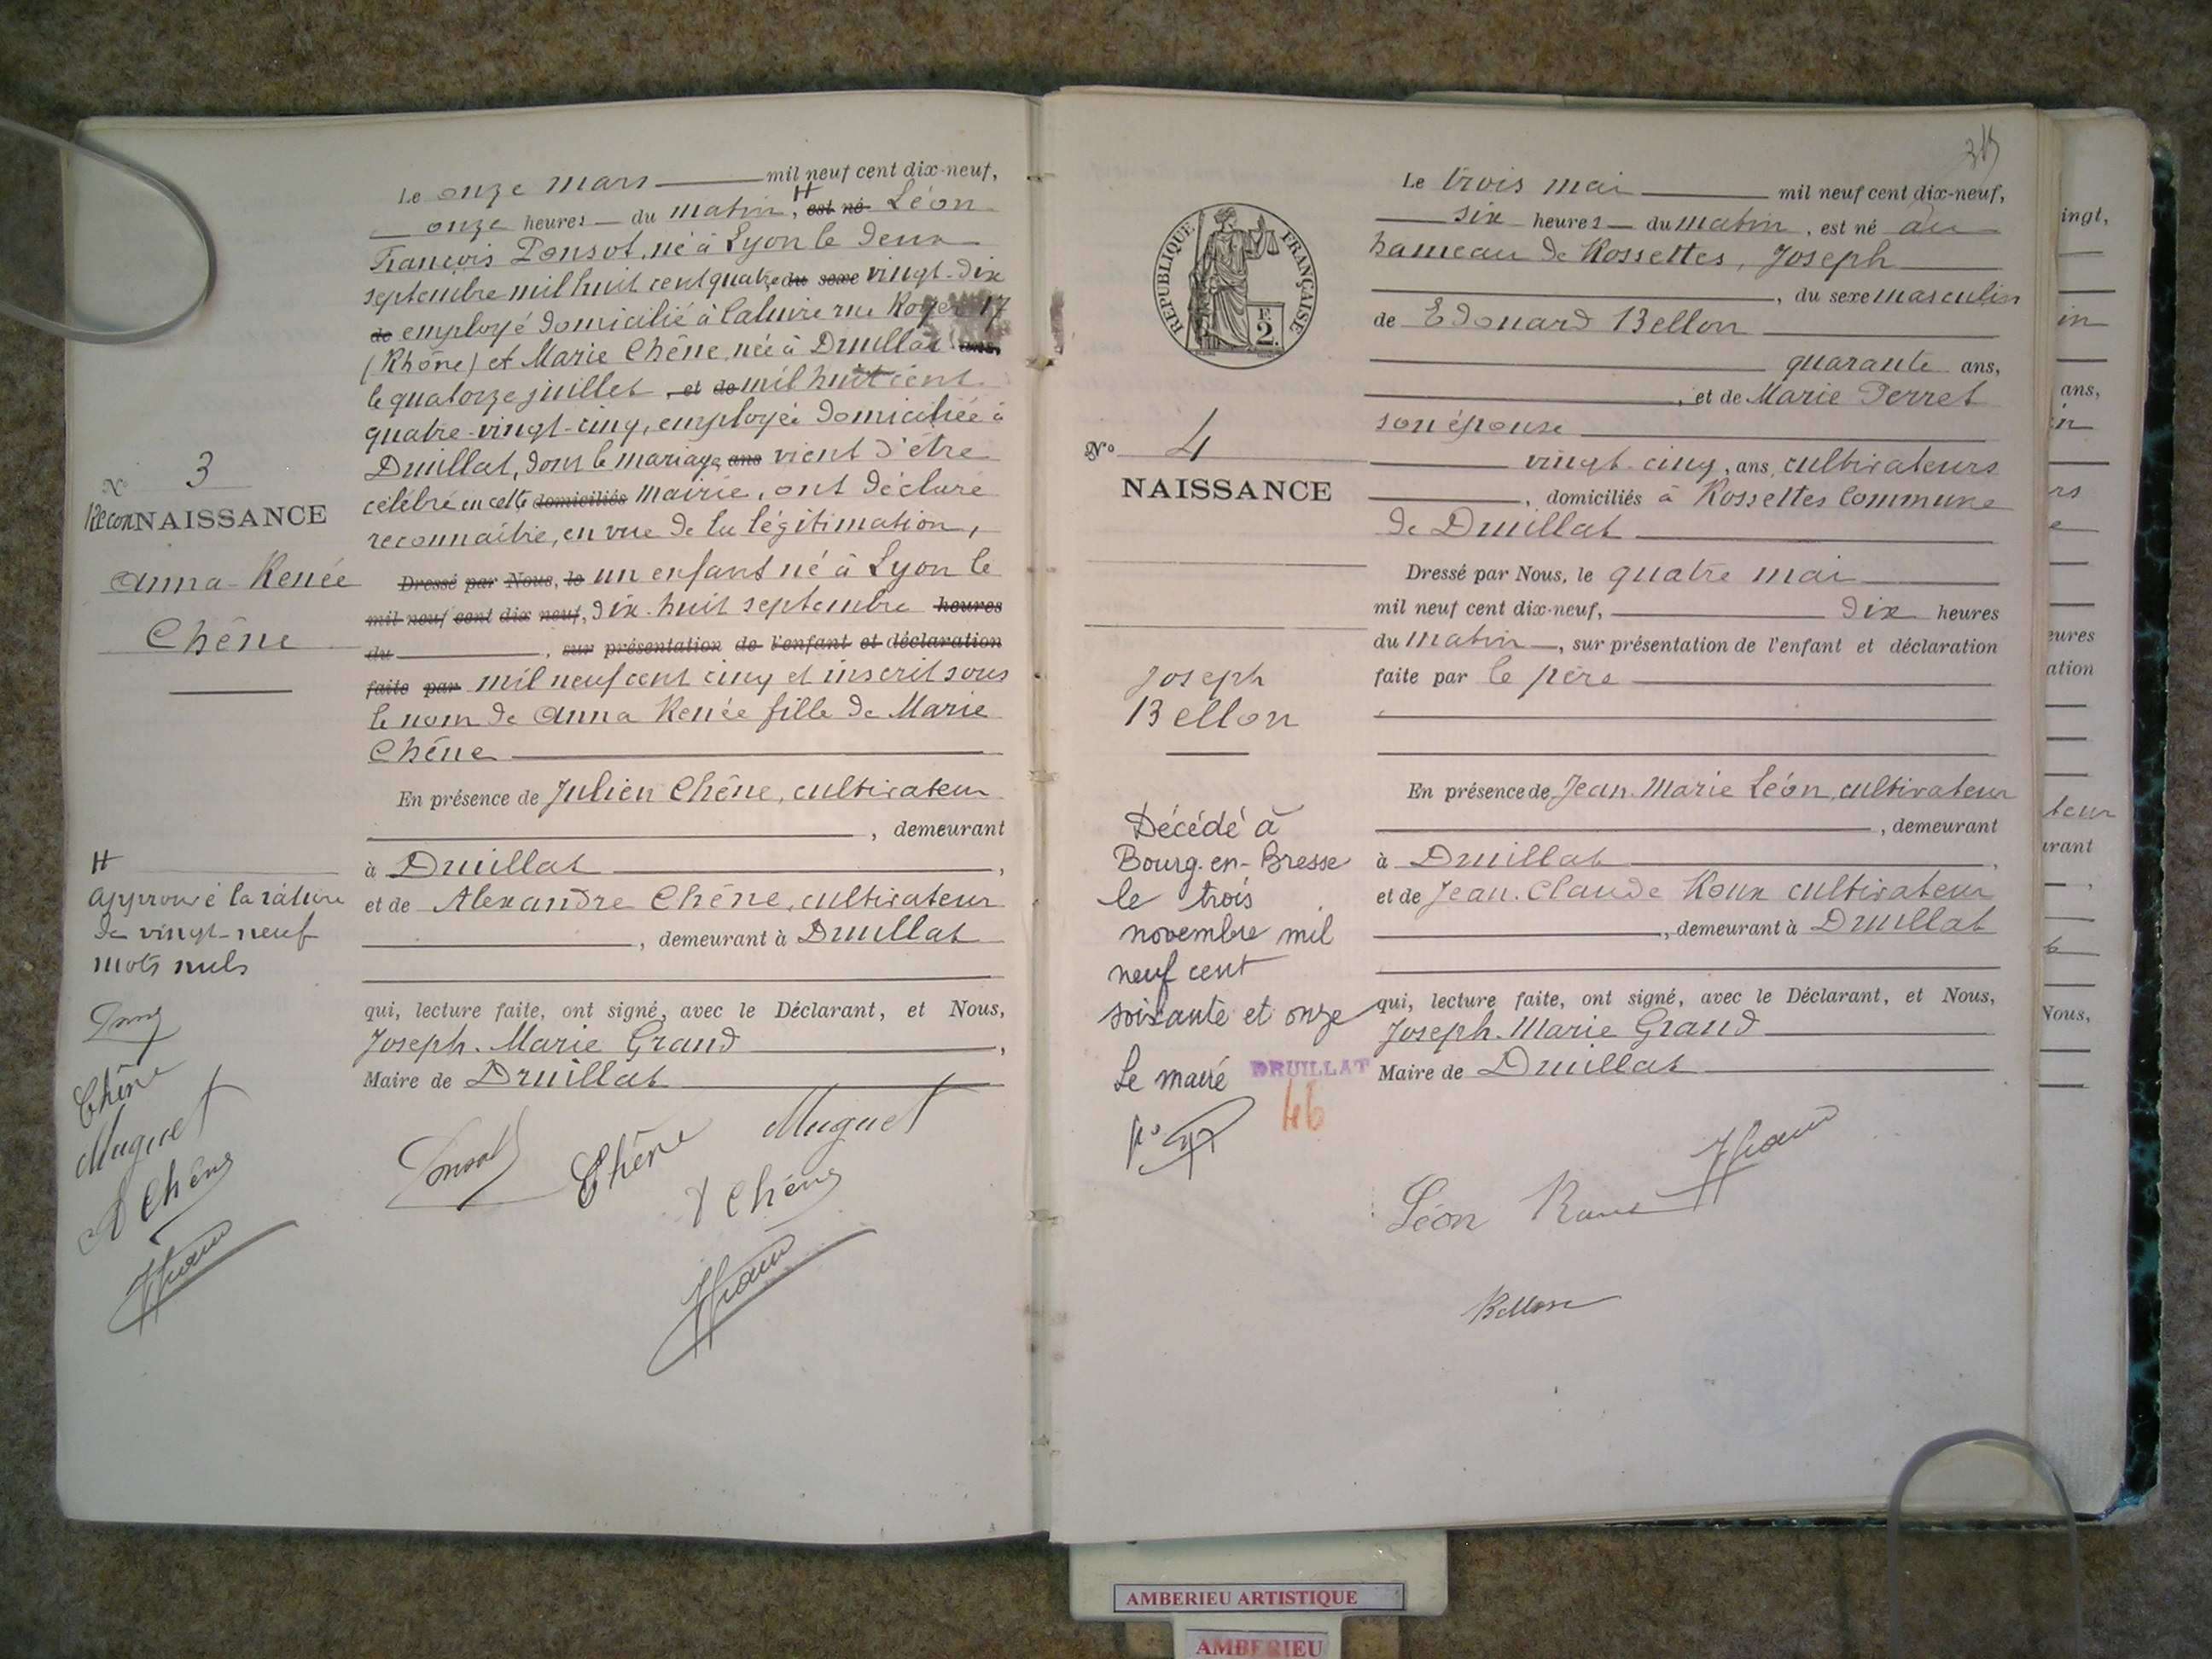 Le onze mars mil neuf cent dix-neuf,
onze heures du matin, H est né Léon
François Ponsot, né à Lyon le deux
septembre mil huit cent quatre du sexe vingt-dix
de employé domicilié à Caluire rue Royer 17
(Rhône) et Marie Chêne, née à Druillat ans,
le quatorze juillet, et de mil huit cent
quatre-vingt-cinq, employée domiciliée à
Druillat, dont le mariage ans vient d'être
célébré en cette domiciliés mairie, ont déclaré
reconnaître, en vue de la légitimation,
Dressé par Nous, le un enfant né à Lyon le
mil neuf cent dix neuf, dix-huit septembre heures
du , sur présentation de l'enfant et déclaration
faite par mil neuf cent cinq et inscrit sous
le nom de Anna Renée fille de Marie
Chêne
En présence de Julien Chêne, cultivateur
, demeurant
à Druillat ,
et de Alexandre Chêne, cultivateur
, demeurant à Druillat
qui, lecture faite, ont signé, avec le Déclarant, et Nous,
Joseph-Marie Grand ,
Maire de Druillat
Ponsot Chêne Muguet
Chêne
JGrand
No 3
ReconNAISSANCE
Anna-Renée
Chêne
H
Approuvé la rature
de vingt-neuf
mots nuls
Chêne
Muguet
A Chêne
JGrand
315
REPUBLIQUE FRANÇAISE
2.
No 4
NAISSANCE
Joseph
Bellon
Décédé à
Bourg-en-Bresse
le trois
novembre mil
neuf cent
soixante et onze
Le maire
DRUILLAT
46
Le trois mai mil neuf cent dix-neuf,
six heures du matin, est né au
hameau de Rossettes, Joseph
, du sexe masculin
de Edouard Bellon
quarante ans,
, et de Marie Perret
son épouse
vingt-cinq, ans, cultivateurs
, domiciliés à Rossettes Commune
de Druillat
Dressé par Nous, le quatre mai
mil neuf cent dix-neuf, dix heures
du matin, sur présentation de l'enfant et déclaration
faite par le père
En présence de Jean-Marie Léon, cultivateur
, demeurant
à Druillat ,
et de Jean-Claude Roux cultivateur
, demeurant à Druillat
qui, lecture faite, ont signé, avec le Déclarant, et Nous,
Joseph-Marie Grand
Maire de Druillat
JGrand
Léon Roux
Bellon
ingt,
in
ans,
in
rs
e
eures
ation
teur
urant
,
Nous,
AMBERIEU ARTISTIQUE
AMBERIEU